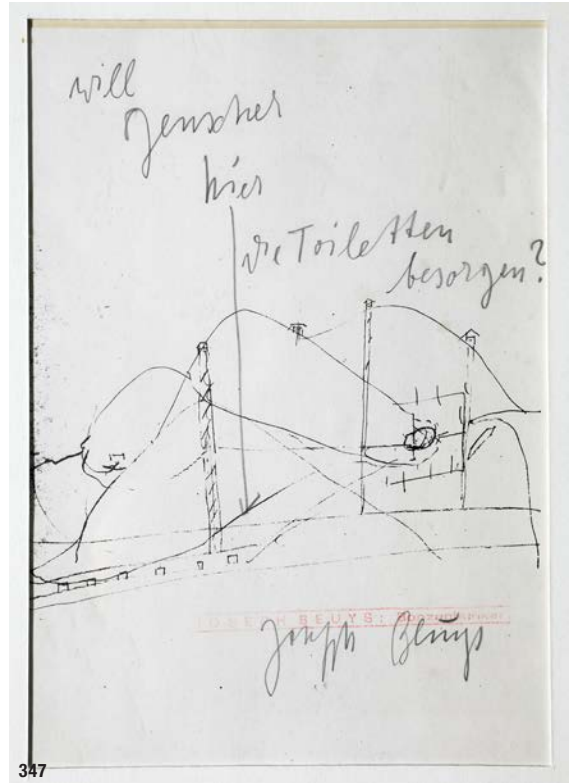 will
Genscher
hier
die Toiletten
besorgen?
JOSEPH BEUYS:
Joseph Beuys
347